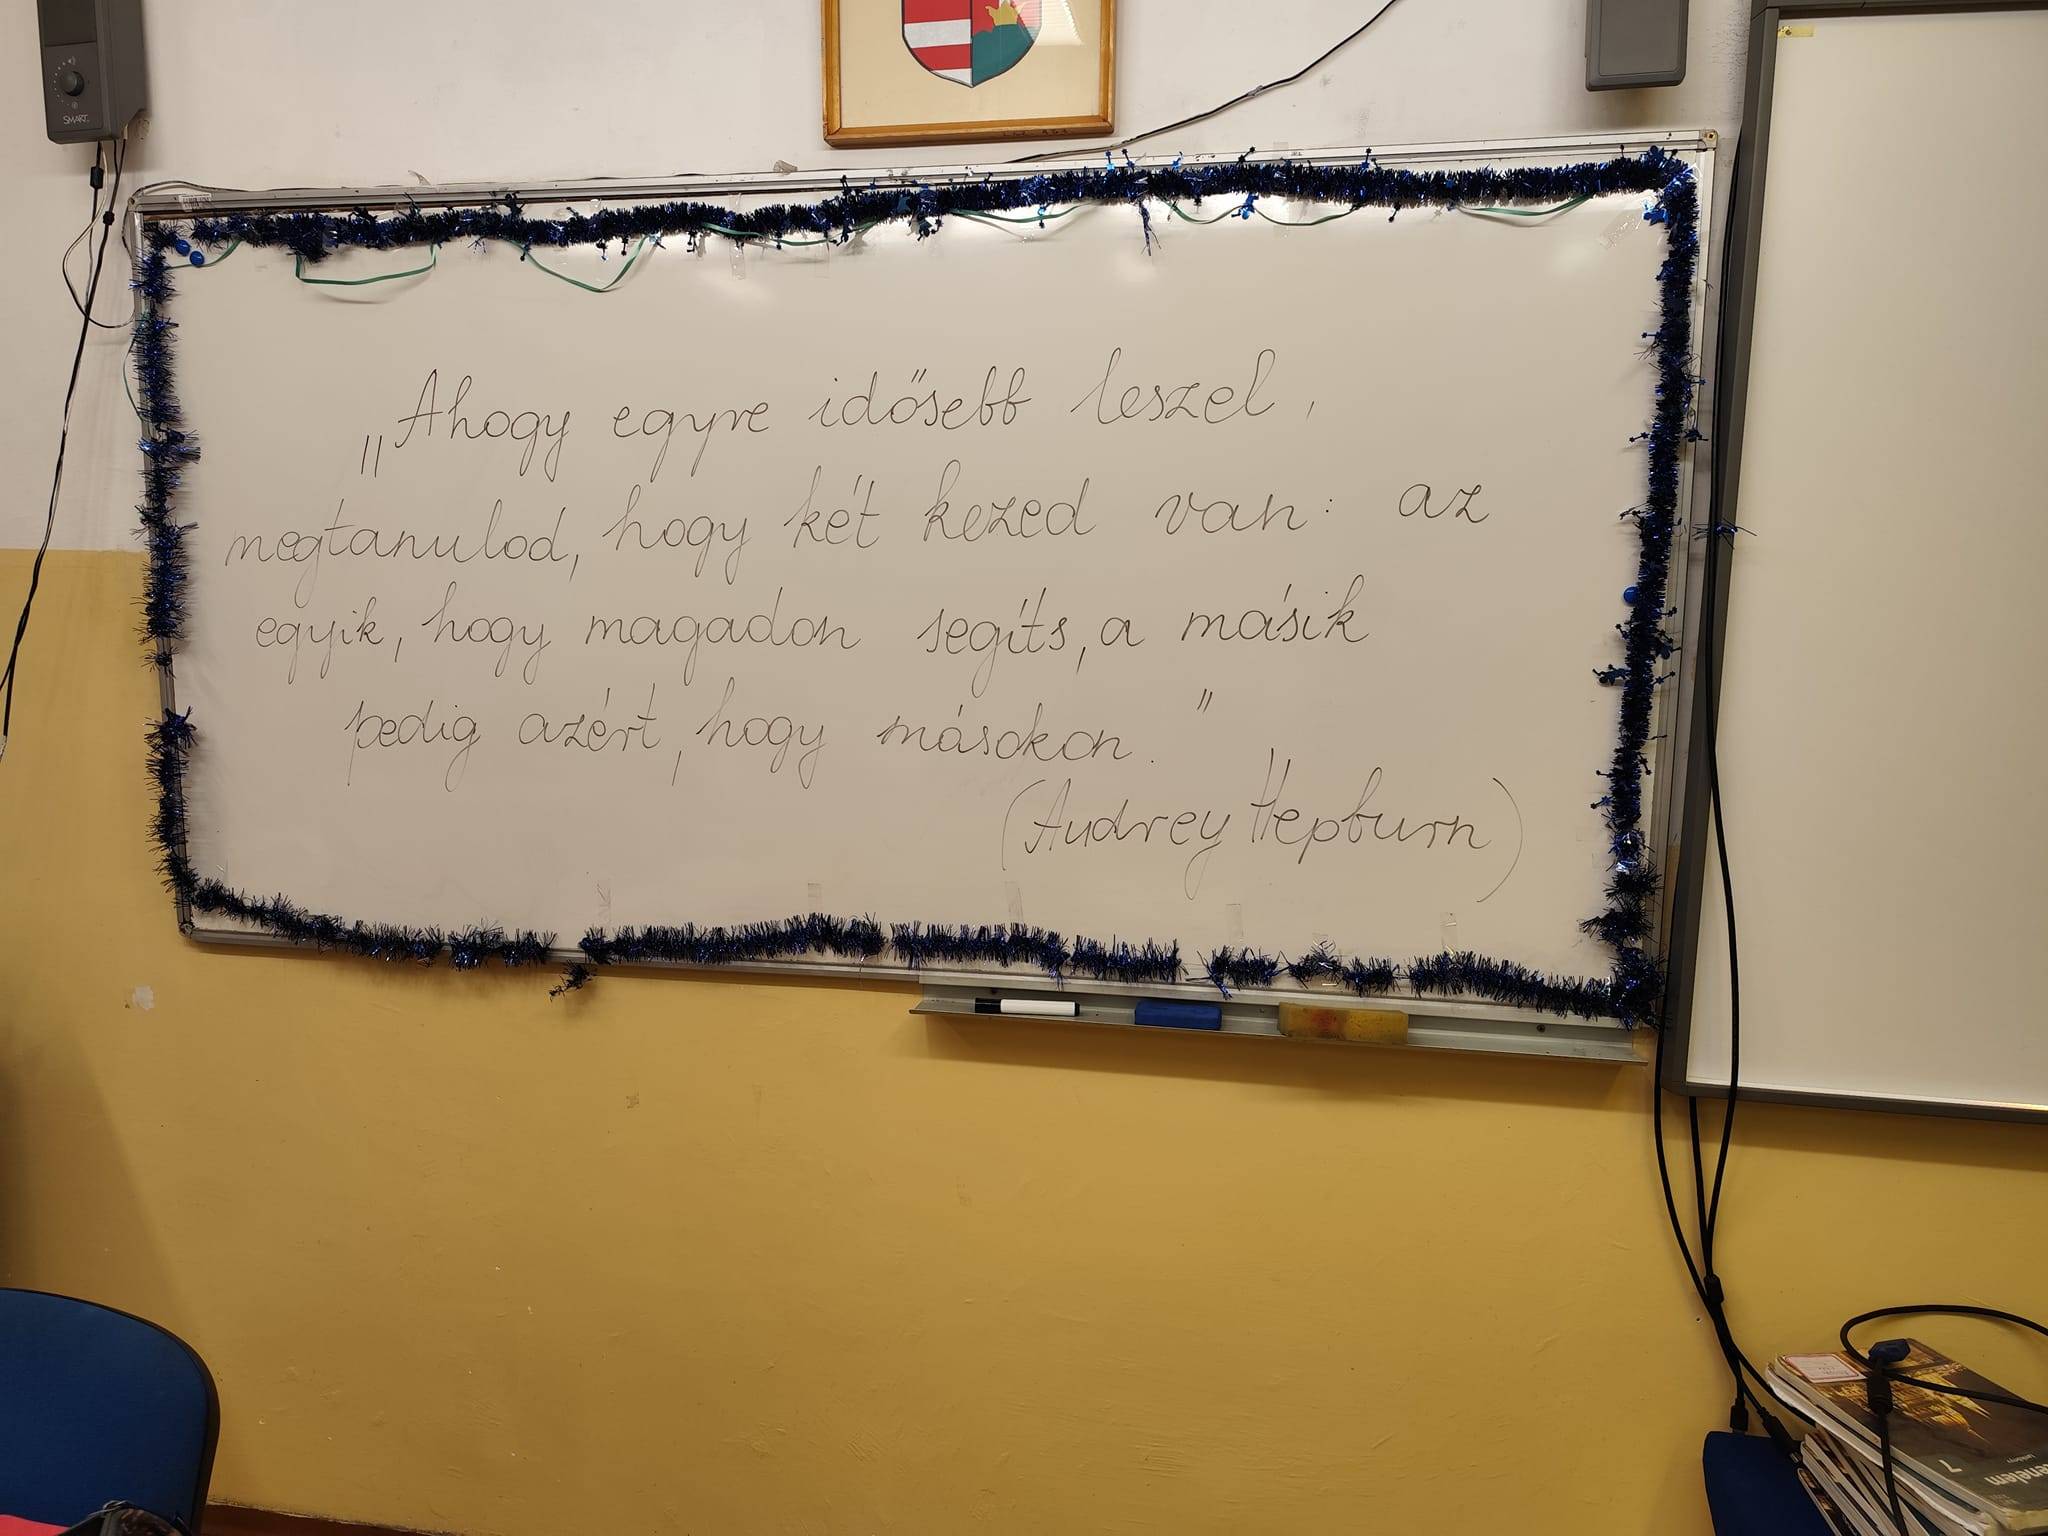 SMART
„Ahogy egyre idősebb leszel,
megtanulod, hogy két kezed van: az
egyik, hogy magadon segíts, a másik
pedig azért, hogy másokon."
(Audrey Hepburn)
7